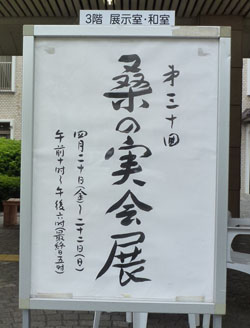 3階 展示室・和室
第三十回
桑の実会展
四月二十日(金)～二十二日(日)
午前十時～午後六時(最終日五時)